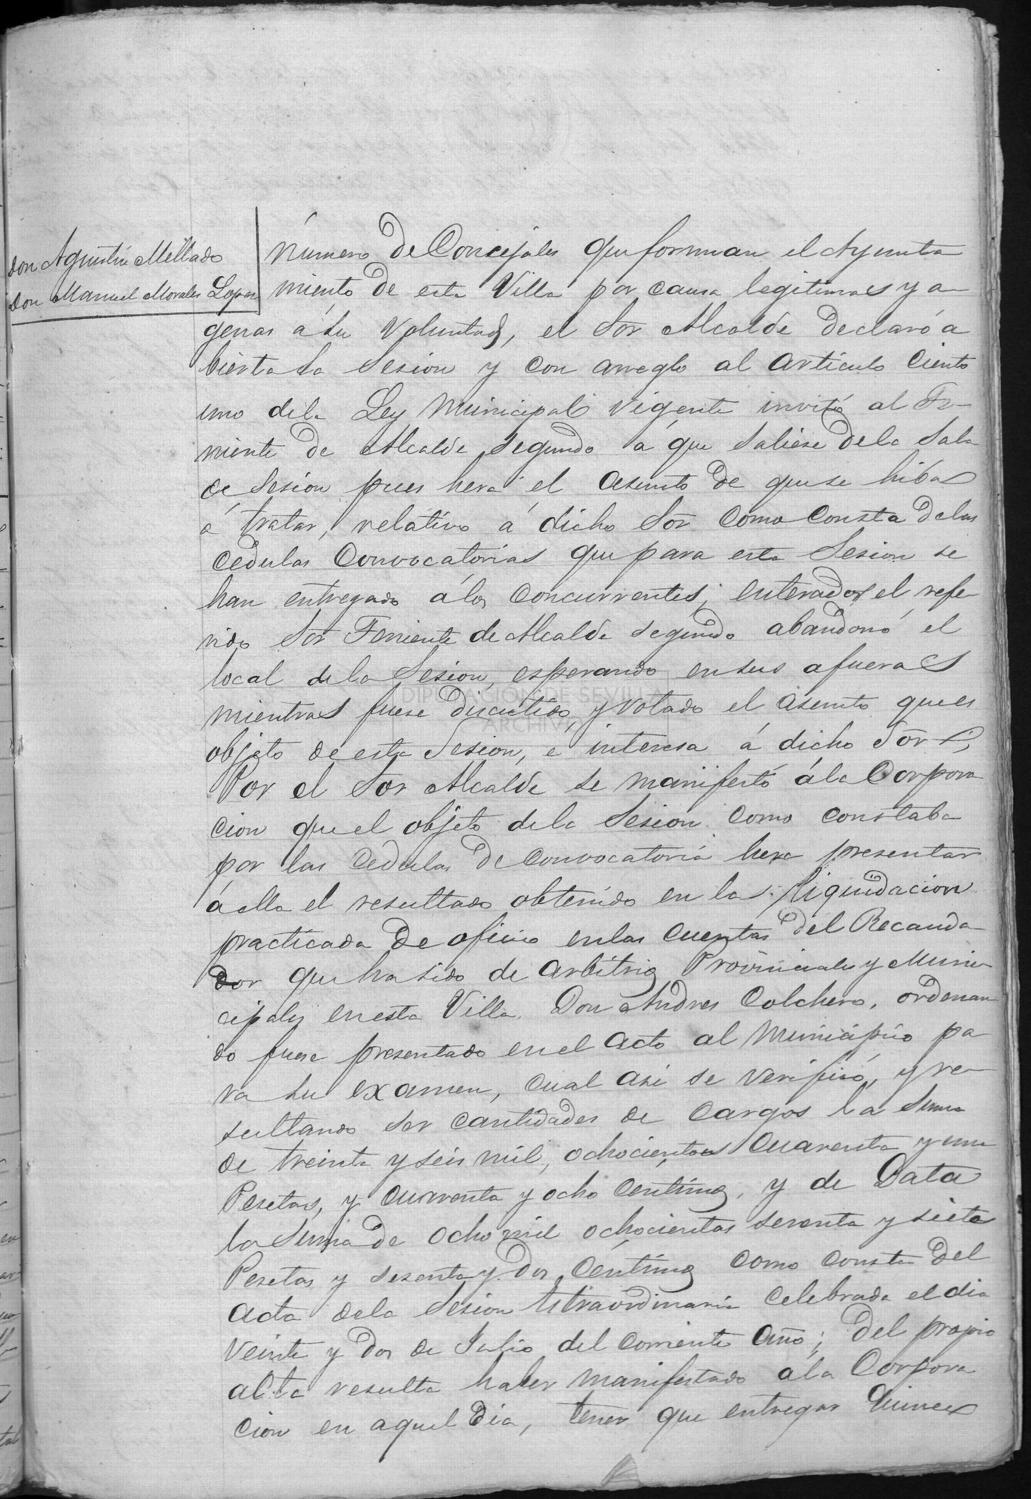 Don Agustin Mellado
Don Manuel Morales Lopez
número de Concejales que forman el Ayunta
miento de esta Villa por causa legitimas y a
genas á su voluntad, el Sor Alcalde declaró a
bierta la Sesion y con arreglo al articulo ciento
uno de la Ley Municipal vigente invitó al Te
niente de Alcalde segundo á que saliese de la Sala
de Sesion pues hera el asunto de que se hiba
á tratar, relativo á dicho Sor como consta de las
cedulas convocatorias que para esta Sesion se
han entregado á los concurrentes; enterado el refe
rido Sor Teniente de Alcalde segundo abandonó el
local de la Sesion, esperando en sus afueras
DIPUTACIÓN DE SEVILLA
ARCHIVO
mientras fuese discutido, y votado el asunto que es
objeto de esta Sesion, e interesa á dicho Sor
Por el Sor Alcalde se manifestó á la Corpora
cion que el objeto de la Sesion como constaba
por las cedulas de convocatoria hera presentar
á ella el resultado obtenido en la liquidacion
practicada de oficio en las cuentas del Recauda
dor que ha sido de arbitrios Provinciales y Muni
cipales en esta Villa Don Andres Colchero, ordenan
do fuese presentado en el acto al Municipio pa
ra su examen, cual asi se verificó, y re
sultando ser cantidades de cargos la suma
de treinta y seis mil, ochocientas cuarenta y una
Pesetas, y cuarenta y ocho centimos, y de Data
la suma de ocho mil ochocientas sesenta y siete
Pesetas y sesenta y dos centimos como consta del
acta de la Sesion Estraordinaria celebrada el dia
veinte y dos de Julio del corriente año; del propio
acta resulta haber manifestado á la Corpora
cion en aquel dia, tener que entregar quince